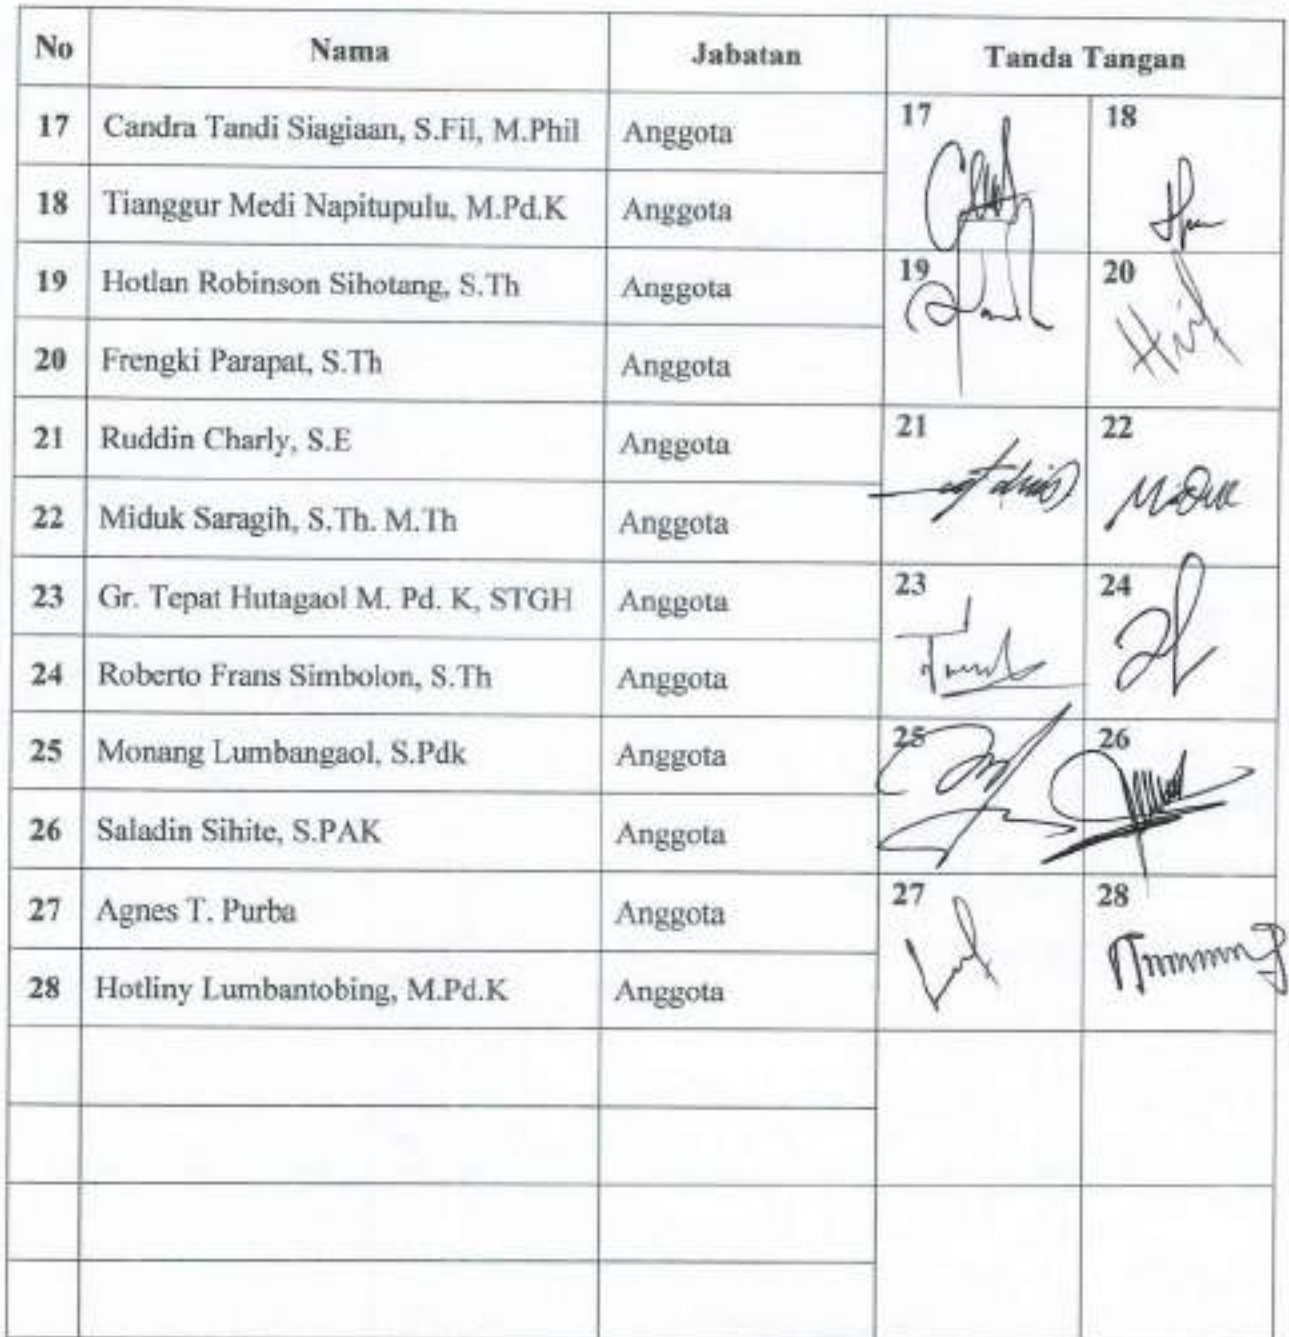 No Nama Jabatan Tanda Tangan
17 Candra Tandi Siagiaan, S.Fil, M.Phil Anggota 17 18
18 Tianggur Medi Napitupulu, M.Pd.K Anggota
19 Hotlan Robinson Sihotang, S.Th Anggota 19 20
20 Frengki Parapat, S.Th Anggota
21 Ruddin Charly, S.E Anggota 21 22
22 Miduk Saragih, S.Th. M.Th Anggota
23 Gr. Tepat Hutagaol M. Pd. K, STGH Anggota 23 24
24 Roberto Frans Simbolon, S.Th Anggota
25 Monang Lumbangaol, S.Pdk Anggota 25 26
26 Saladin Sihite, S.PAK Anggota
27 Agnes T. Purba Anggota 27 28
28 Hotliny Lumbantobing, M.Pd.K Anggota